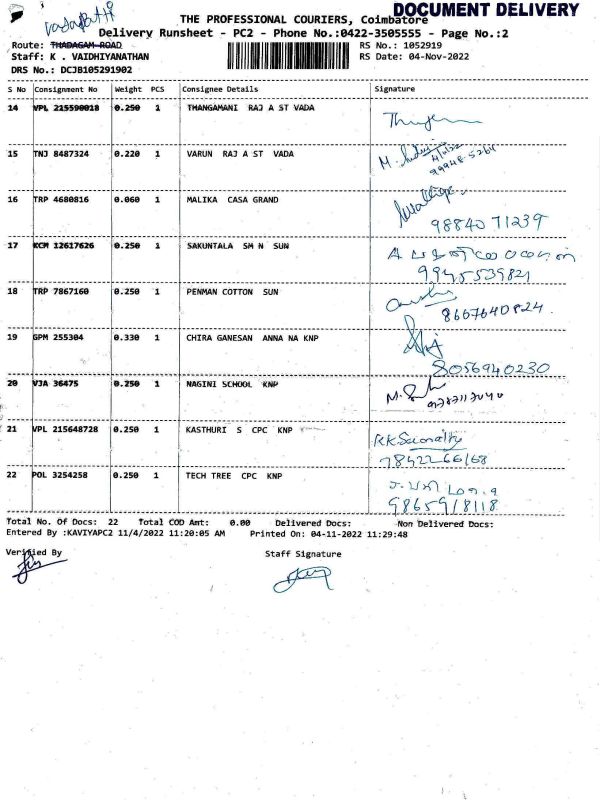 DOCUMENT DELIVERY
THE PROFESSIONAL COURIERS, Coimbatore
Delivery Runsheet - PC2 - Phone No.:0422-3505555 - Page No.:2
Route: THADAGAM ROAD
RS No.: 1052919
Staff: K . VAIDHIYANATHAN
RS Date: 04-Nov-2022
DRS No.: DCJB105291902
S No Consignment No Weight PCS Consignee Details Signature
14 VPL 215590018 0.250 1 THANGAMANI RAJ A ST VADA
15 TNJ 8487324 0.220 1 VARUN RAJ A ST VADA
16 TRP 4680816 0.060 1 MALIKA CASA GRAND
98840 71239
17 KCM 12617626 0.250 1 SAKUNTALA SM N SUN
9945539821
18 TRP 7867160 0.250 1 PENMAN COTTON SUN
8667640824
19 GPM 255304 0.330 1 CHIRA GANESAN ANNA NA KNP
8056940230
20 VJA 36475 0.250 1 NAGINI SCHOOL KNP
21 VPL 215648728 0.250 1 KASTHURI S CPC KNP
22 POL 3254258 0.250 1 TECH TREE CPC KNP
Total No. Of Docs: 22 Total COD Amt: 0.00 Delivered Docs: Non Delivered Docs:
Entered By :KAVIYAPC2 11/4/2022 11:20:05 AM Printed On: 04-11-2022 11:29:48
Verified By Staff Signature